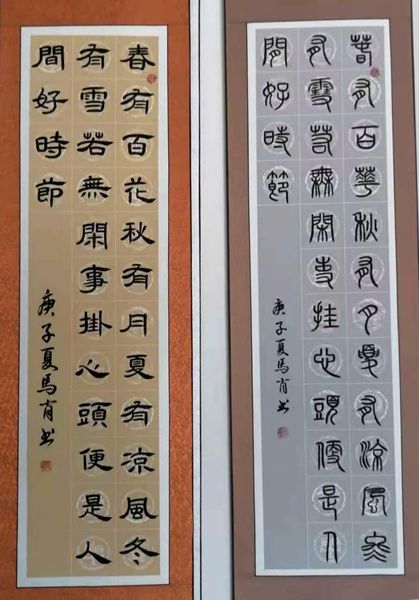 春有百花秋有月夏有涼風冬
有雪若無閑事掛心頭便是人
間好時節
庚子夏馬书
春有百花秋有月夏有涼風冬
有雪若無閑事挂心頭便是人
間好時節
庚子夏馬书